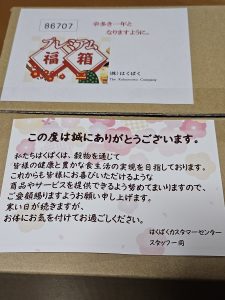 86707
幸多き一年と
なりますように。
プレミアム
福箱
(株)はくばく
The Kokumotsu Company
この度は誠にありがとうございます。
私たちはくばくは、穀物を通じて
皆様の健康と豊かな食生活の実現を目指しております。
これからも皆様にお喜びいただけるような
商品やサービスを提供できるよう努めてまいりますので、
ご愛顧賜りますようお願い申し上げます。
寒い日が続きますが、
お体にお気を付けてお過ごしください。
はくばくカスタマーセンター
スタッフ一同